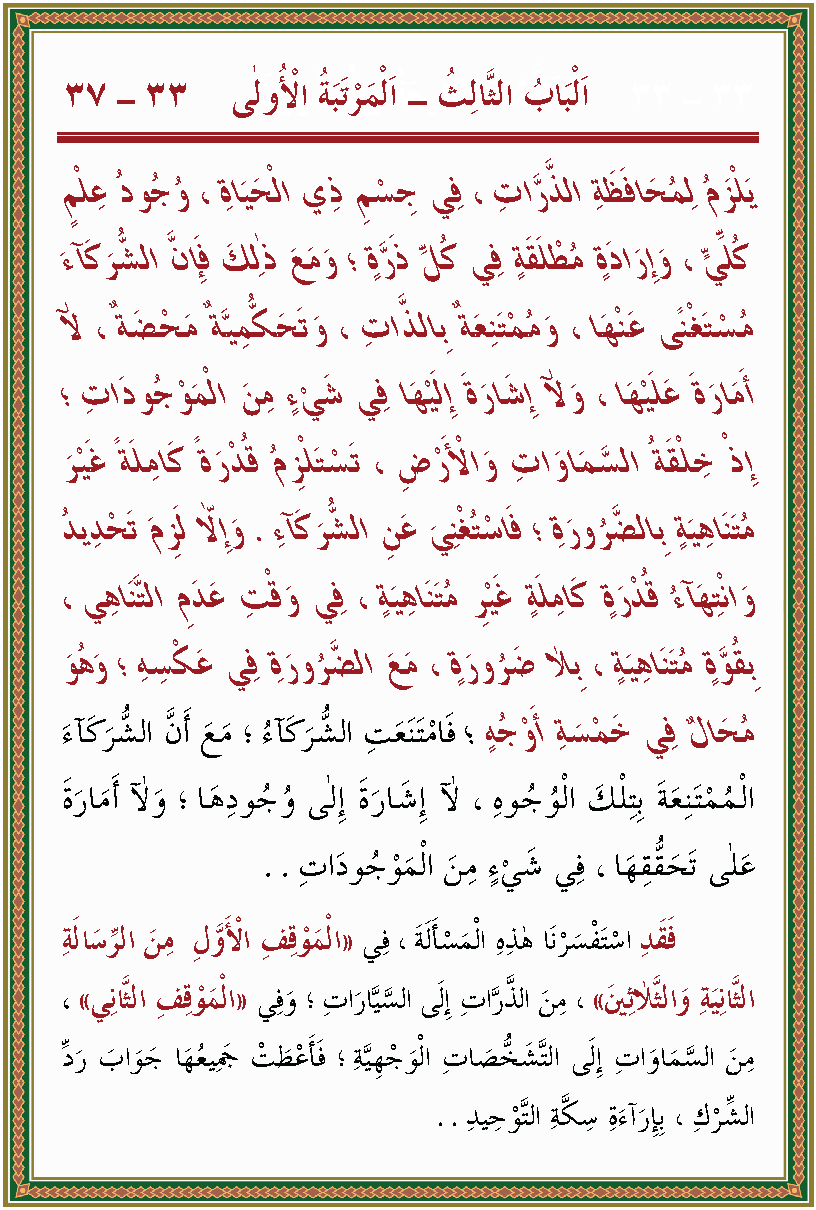 اَلْبَابُ الثَّالِثُ – اَلْمَرْتَبَةُ الْأُولٰى ٣٣ – ٣٧
يَلْزَمُ لِمُحَافَظَةِ الذَّرَّاتِ ، فِي جِسْمِ ذِي الْحَيَاةِ ، وُجُودُ عِلْمٍ
كُلِّيٍّ ، وَإِرَادَةٍ مُطْلَقَةٍ فِي كُلِّ ذَرَّةٍ ؛ وَمَعَ ذٰلِكَ فَإِنَّ الشُّرَكَآءَ
مُسْتَغْنًى عَنْهَا ، وَمُمْتَنِعَةٌ بِالذَّاتِ ، وَتَحَكُّمِيَّةٌ مَحْضَةٌ ، لَآ
أَمَارَةَ عَلَيْهَا ، وَلَآ إِشَارَةَ إِلَيْهَا فِي شَيْءٍ مِنَ الْمَوْجُودَاتِ ؛
إِذْ خِلْقَةُ السَّمَاوَاتِ وَالْأَرْضِ ، تَسْتَلْزِمُ قُدْرَةً كَامِلَةً غَيْرَ
مُتَنَاهِيَةٍ بِالضَّرُورَةِ ؛ فَاسْتُغْنِيَ عَنِ الشُّرَكَآءِ . وَإِلَّا لَزِمَ تَحْدِيدُ
وَانْتِهَآءُ قُدْرَةٍ كَامِلَةٍ غَيْرِ مُتَنَاهِيَةٍ ، فِي وَقْتِ عَدَمِ التَّنَاهِي ،
بِقُوَّةٍ مُتَنَاهِيَةٍ ، بِلَا ضَرُورَةٍ ، مَعَ الضَّرُورَةِ فِي عَكْسِهِ ؛ وَهُوَ
مُحَالٌ فِي خَمْسَةِ أَوْجُهٍ ؛ فَامْتَنَعَتِ الشُّرَكَآءُ ؛ مَعَ أَنَّ الشُّرَكَآءَ
الْمُمْتَنِعَةَ بِتِلْكَ الْوُجُوهِ ، لَآ إِشَارَةَ إِلٰى وُجُودِهَا ؛ وَلَآ أَمَارَةَ
عَلٰى تَحَقُّقِهَا ، فِي شَيْءٍ مِنَ الْمَوْجُودَاتِ . .
فَقَدِ اسْتَفْسَرْنَا هٰذِهِ الْمَسْأَلَةَ ، فِي «الْمَوْقِفِ الْأَوَّلِ مِنَ الرِّسَالَةِ
الثَّانِيَةِ وَالثَّلَاثِينَ» ، مِنَ الذَّرَّاتِ إِلَى السَّيَّارَاتِ ؛ وَفِي «الْمَوْقِفِ الثَّانِي» ،
مِنَ السَّمَاوَاتِ إِلَى التَّشَخُّصَاتِ الْوَجْهِيَّةِ ؛ فَأَعْطَتْ جَمِيعُهَا جَوَابَ رَدِّ
الشِّرْكِ ، بِإِرَآءَةِ سِكَّةِ التَّوْحِيدِ . .